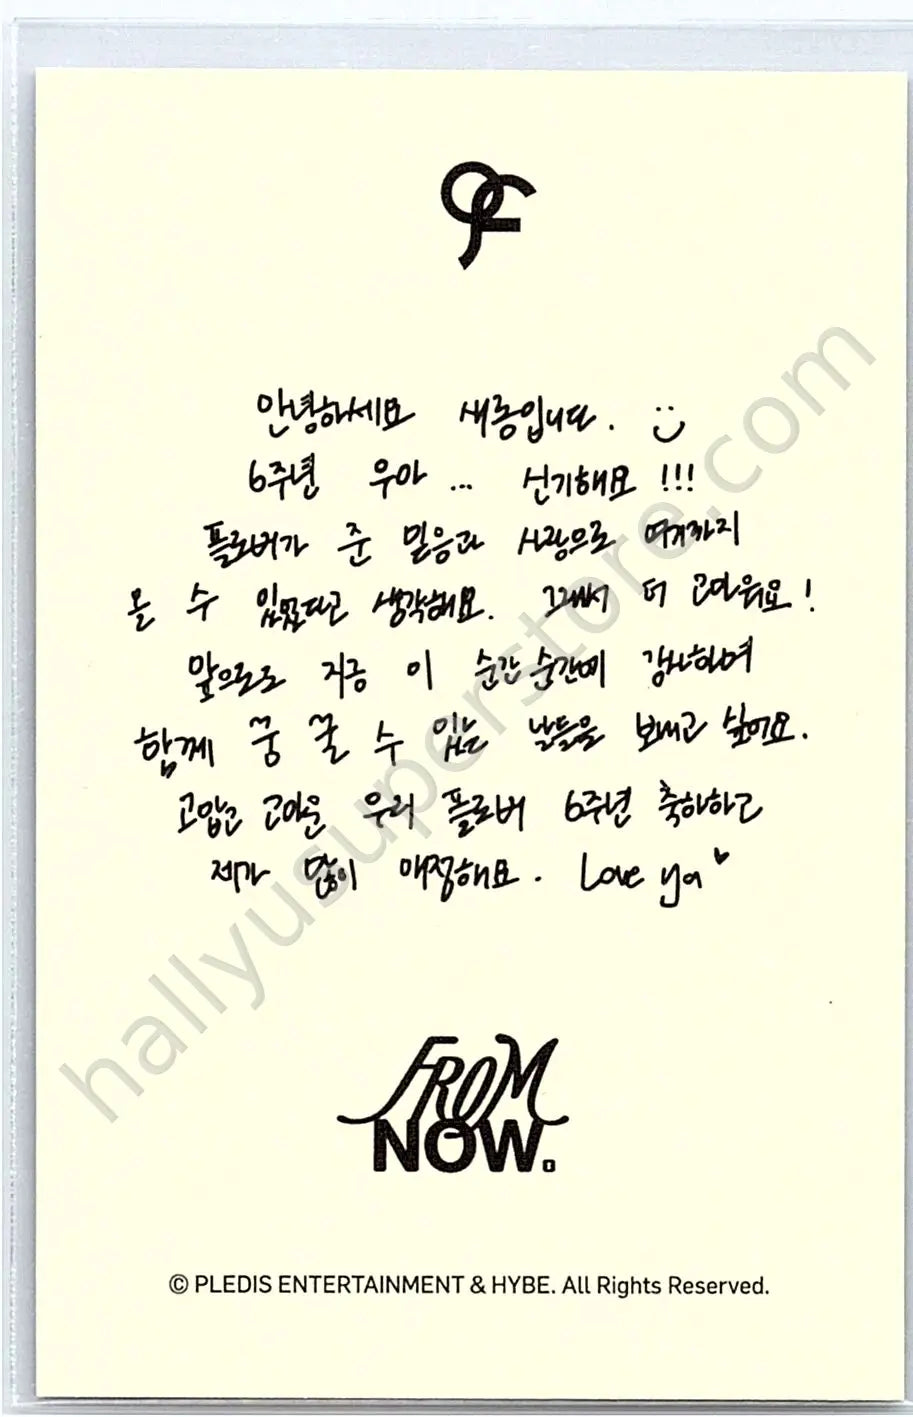 안녕하세요 새롬입니다. :)
6주년 우아... 신기해요!!!
플로버가 준 믿음과 사랑으로 여기까지
올 수 있었다고 생각해요. 그래서 더 고마워요!
앞으로도 지금 이 순간 순간에 감사하며
함께 꿈 꿀 수 있는 날들을 보내고 싶어요.
고맙고 고마운 우리 플로버 6주년 축하하고
제가 많이 애정해요. Love ya♥
FROM
NOW.
© PLEDIS ENTERTAINMENT & HYBE. All Rights Reserved.
hallyusuperstore.com